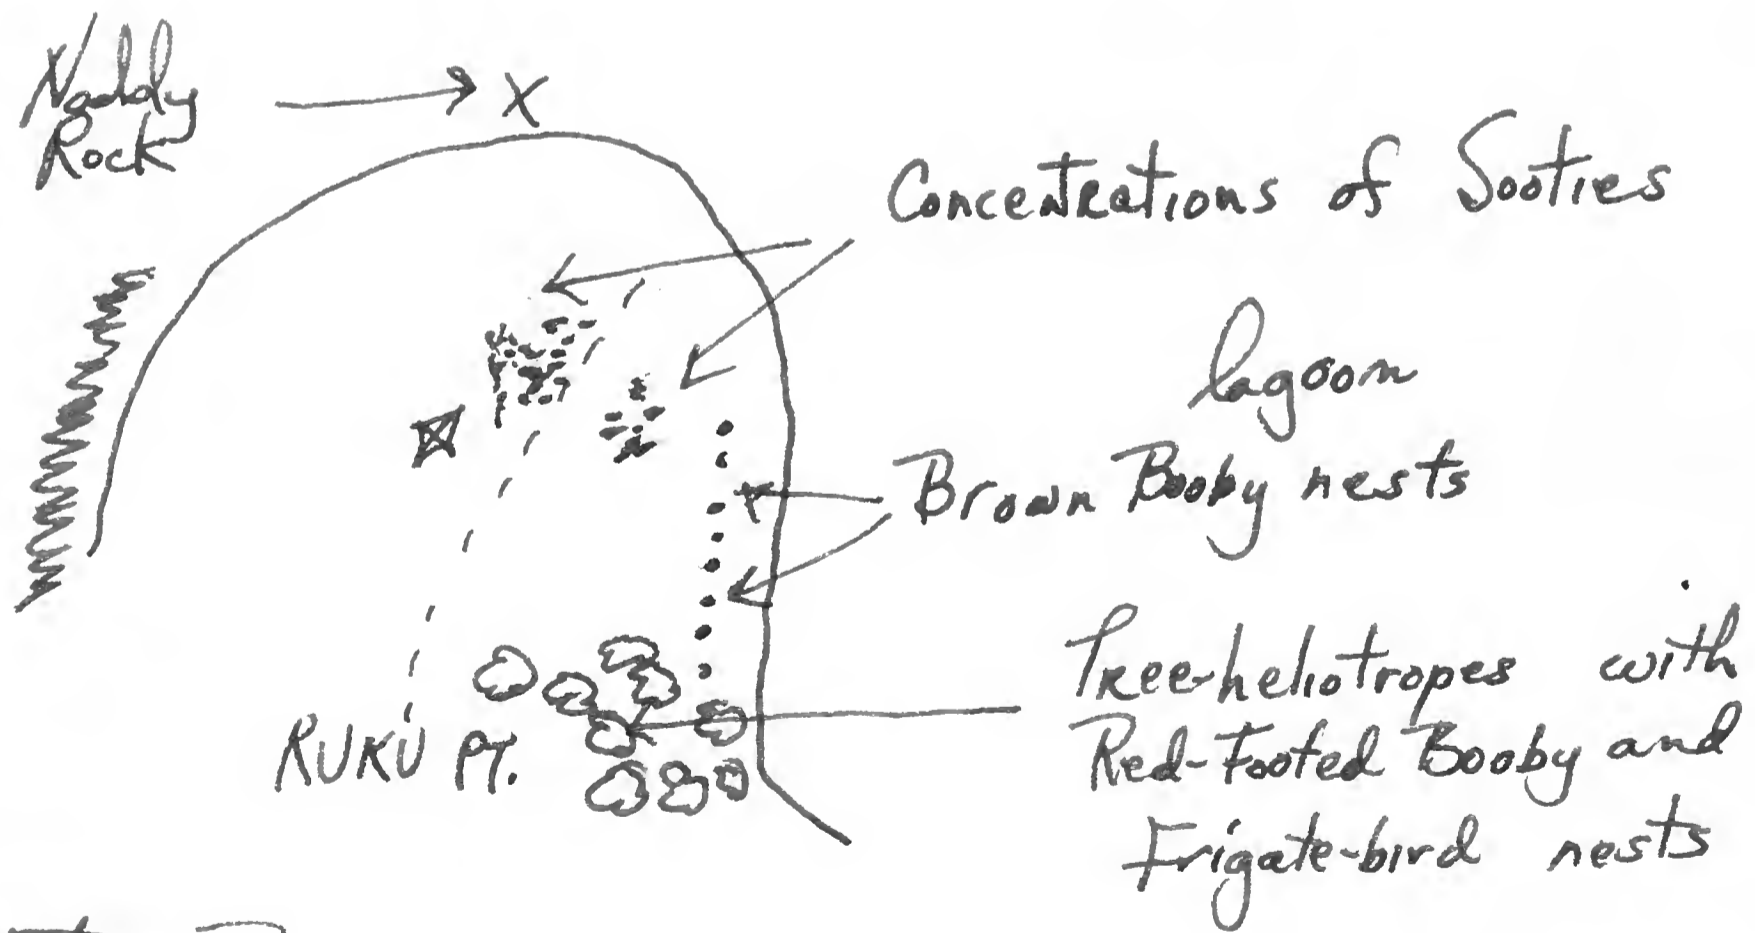 Noddy
Rock
X
Concentrations of Sooties
lagoon
Brown Booby nests
Tree-heliotropes with
Red-Footed Booby and
Frigate-bird nests
KUKU PT.